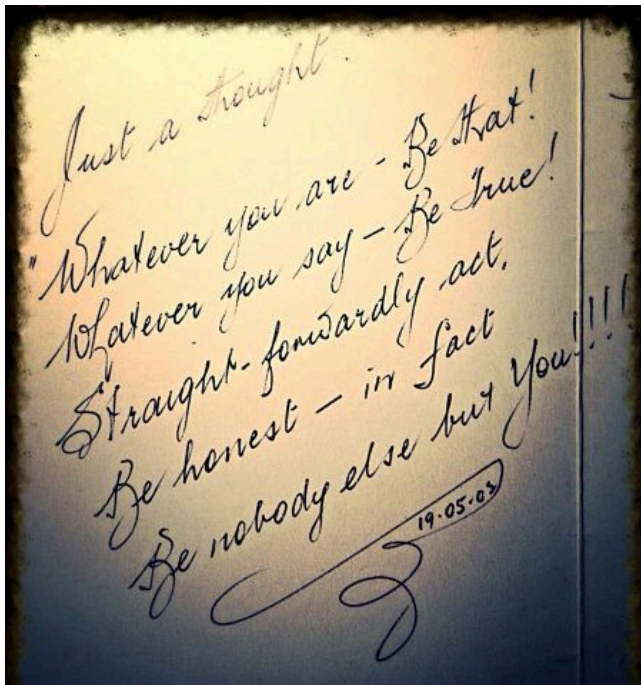 Just a thought.
"Whatever you are - Be that!
Whatever you say - Be True!
Straight-forwardly act,
Be honest - in fact
Be nobody else but You!!!!
19.05.03